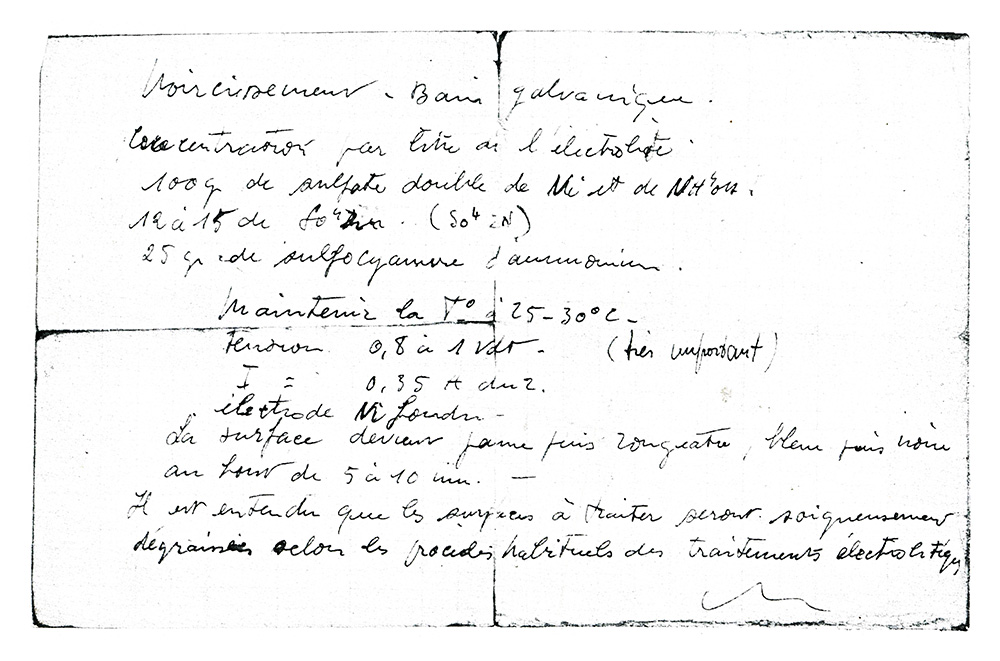 Noircissement - Bain galvanique.
Concentration par litre de l'électrolite
100 gr de sulfate double de Ni et de NH4OH.
12 à 15 de So4Zn. (So4 ZN)
25 gr de sulfocyanure d'ammonium.
Maintenir la T° à 25-30°C-
Tension 0,8 à 1 Volt- (très important)
I = 0,35 A dm2.
électrode Ni fondu-
La surface devient jaune puis rougeatre, bleue puis noire
au bout de 5 à 10 mn. -
Il est entendu que les surfaces à traiter seront soigneusement
dégraissées selon les procédés habituels des traitements électrolitiques